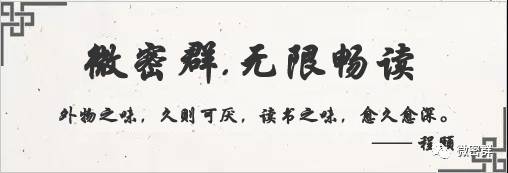 微密群,无限畅读
外物之味，久则可厌，读书之味，愈久愈深。
—— 程颐
微密群